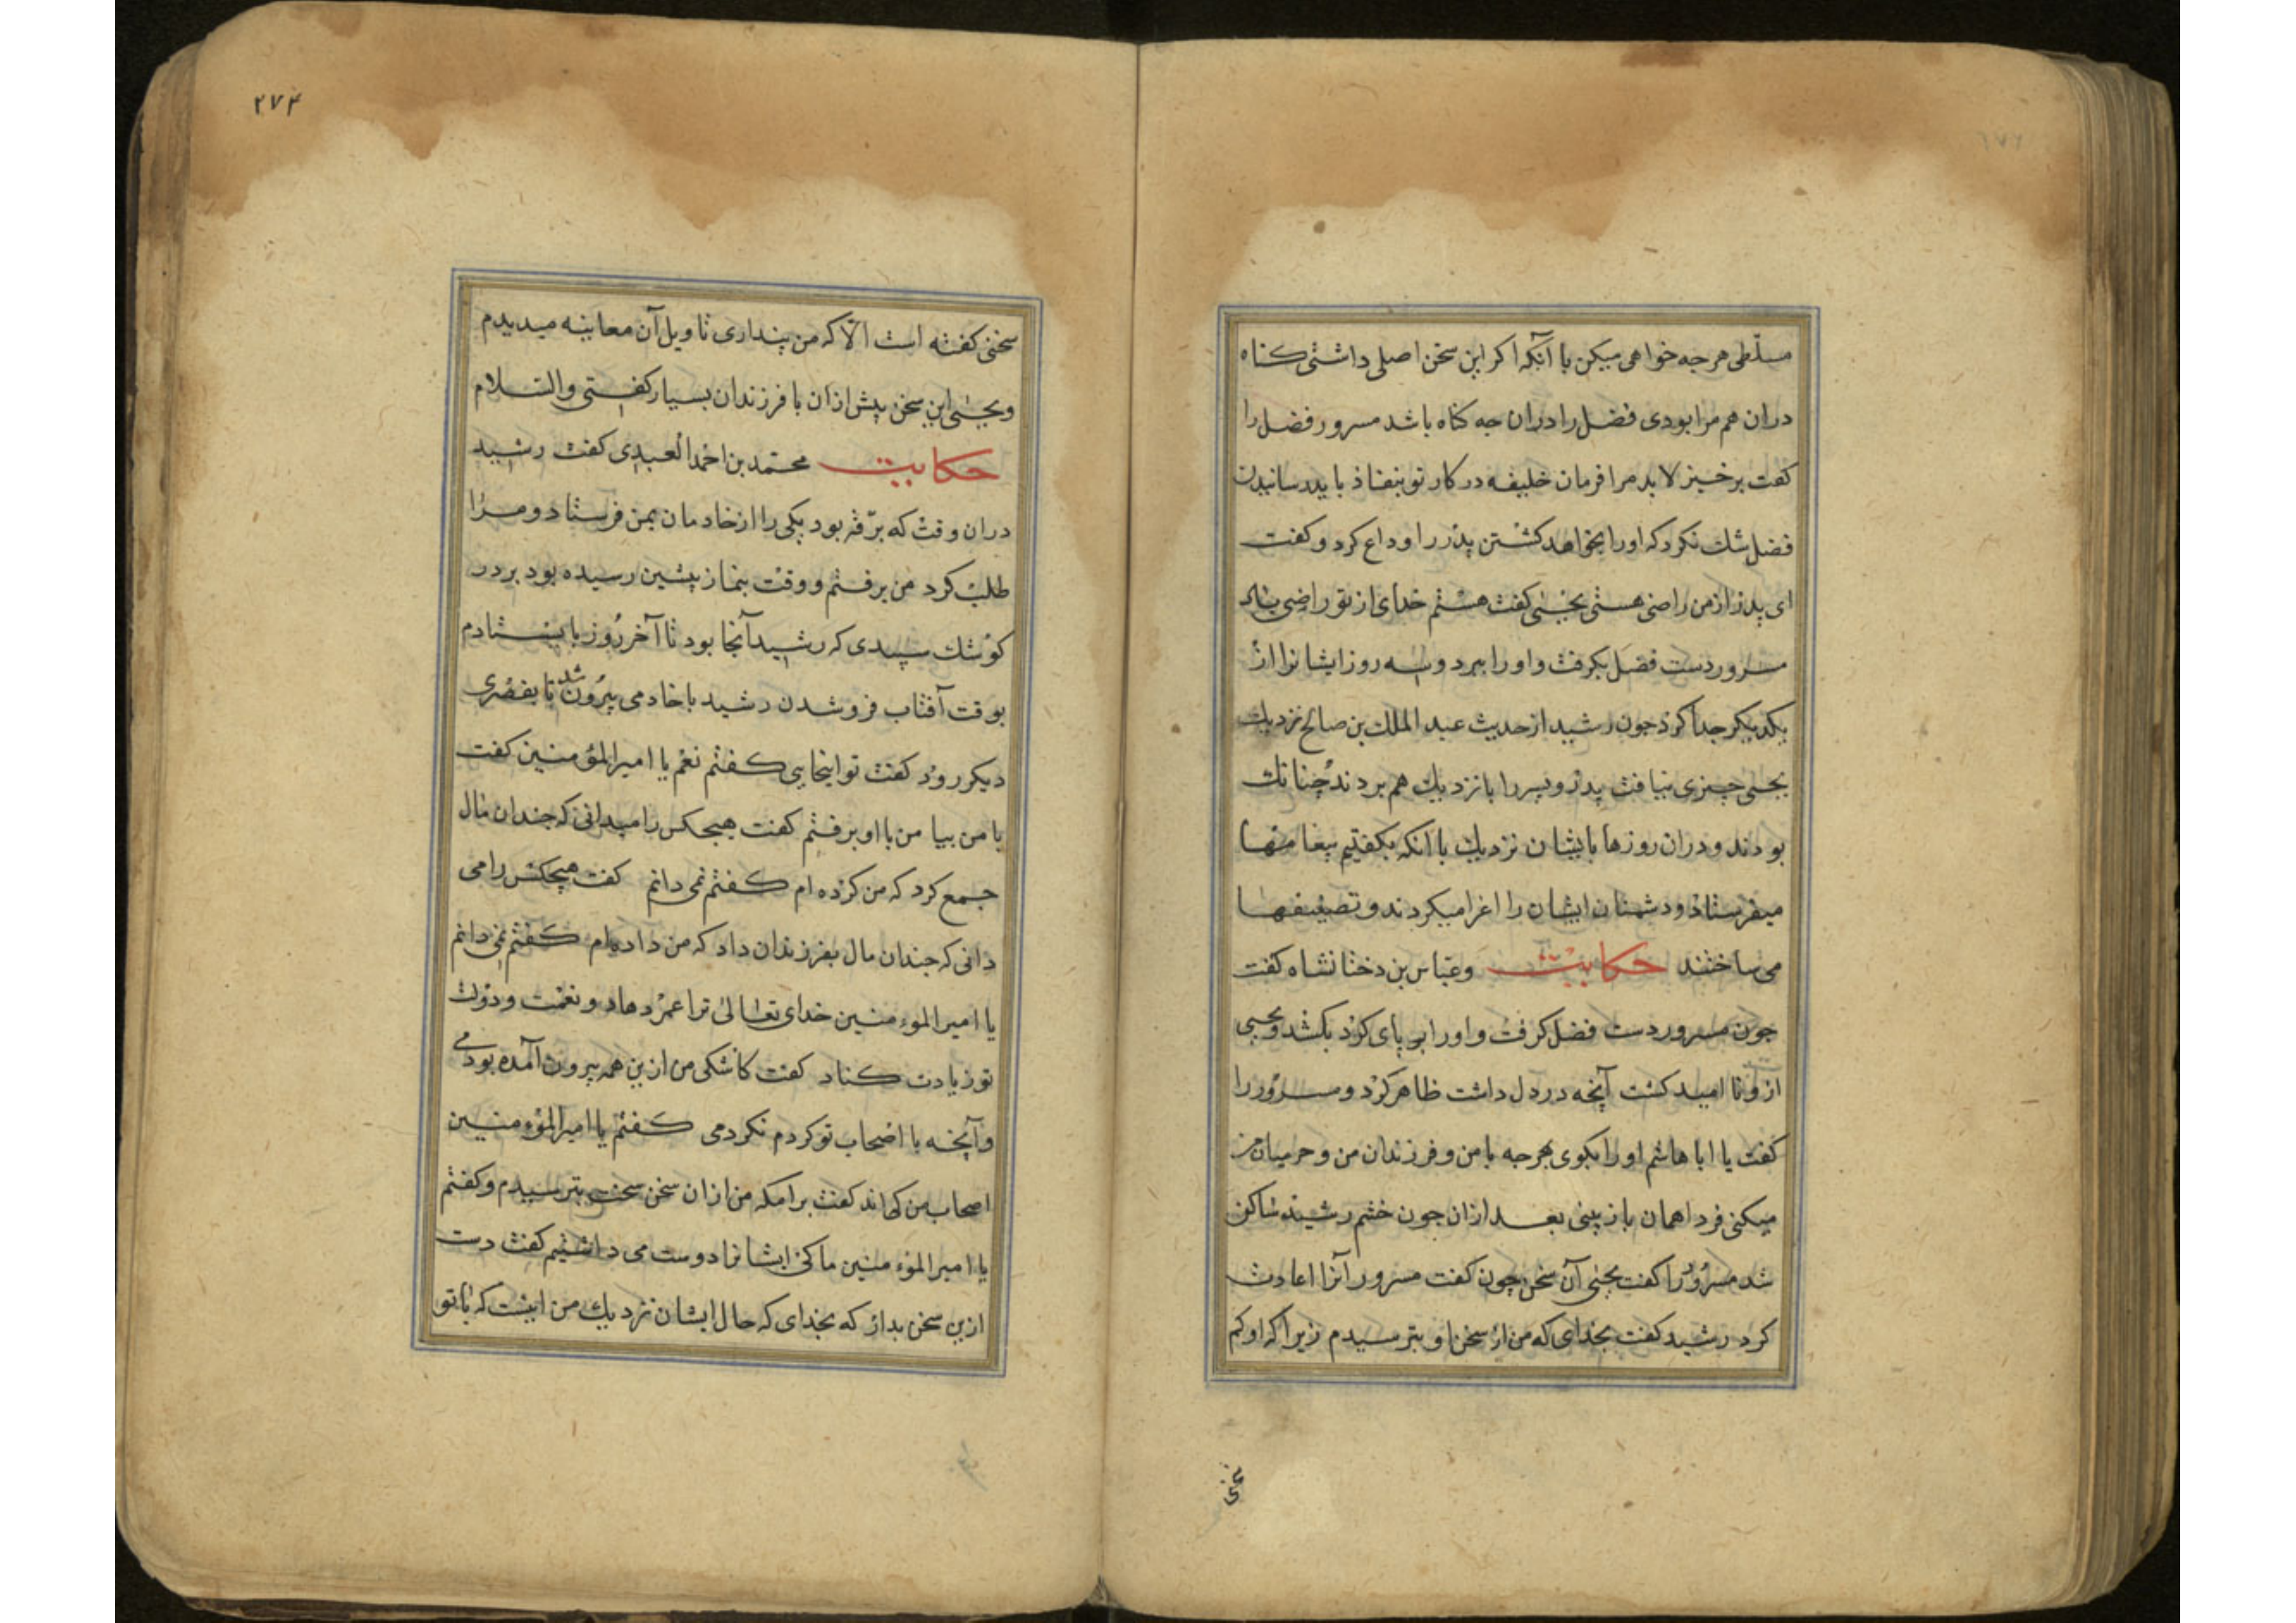 مسلّطی هر جه خواهی میکن با آنکه اکر این سخن اصلی داشتی کناه
دران هم مرا بودی فضل را دران جه کناه باشد مسرور فضل را
کفت برخیز لابد مرا فرمان خلیفه در کار تو بنفاذ باید رسانیدن
فضل شك نکرد که اورا بخواهد کشتن پذر را وداع کرد و کفت
ای پدر از من راضی هستی یحیی کفت هستم خدای از تو راضی باد
مسرور دست فضل بکرفت و اورا ببرد و سه روز ایشانرا از
یکدیکر جدا کرد جون رشید از حدیث عبد الملك بن صالح نزدیك
یحیی جیزی نیافت پدر و پسر را با نزدیك هم بردند چنانك
بودند و دران روزها بایشان نزدیك با انکه بکفتیم پیغامها
میفرستاد و دشمنان ایشان را اغرا میکردند و تضعیفها
می ساختند حکایت و عباس بن دختانشاه کفت
جون مسرور دست فضل کرفت و اورا بر پای کرد بکشد و یحیی
ازو نا امید کشت آنچه در دل داشت ظاهر کرد و مسرور را
کفت یا ابا هاشم اورا بکوی هر جه با من و فرزندان من و حرمیان من
میکنی فردا همان باز بینی بعد ازان جون خشم رشید ساکن
شد مسرور را کفت یحیی آن سخن چون کفت مسرور آنرا اعادت
کرد رشید کفت بخدای که من از سخن او بترسیدم زیرا که او کم
سخنی
۲۷۴
سخنی کفته است الّا که من پنداری تاویل آن معاینه میدیدم
و یحیی این سخن پیش ازان با فرزندان بسیار کفتی والسلام
حکایت محمّد بن احمد العبدی کفت رشید
دران وقت که برقّه بود یکی را از خادمان بمن فرستاد و مرا
طلب کرد من برفتم و وقت نماز پیشین رسیده بود بر در
کوشك سپیدی که رشید آنجا بود تا آخر روز بایستادم
بوقت آفتاب فرو شدن رشید با خادمی بیرون شد تا بقصری
دیکر رود کفت تو اینجایی کفتم نعم یا امیر المؤمنین کفت
با من بیا من با او برفتم کفت هیچکس را میدانی که جندان مال
جمع کرد که من کرده ام کفتم نمی دانم کفت هیچکس را می
دانی که جندان مال بفرزندان داد که من داده ام کفتم نمی دانم
یا امیر المؤمنین خدای تعالی ترا عمر دهاد و نعمت و دولت
تو زیادت کناد کفت کاشکی من ازین همه بیرون آمده بودمی
و آنچه با اصحاب تو کردم نکردمی کفتم یا امیر المؤمنین
اصحاب من کی اند کفت برامکه من ازان سخن سخت بترسیدم و کفتم
یا امیر المؤمنین ما کی ایشانرا دوست می داشتیم کفت دست
ازین سخن بدار که بخدای که حال ایشان نزدیك من اینست که با تو